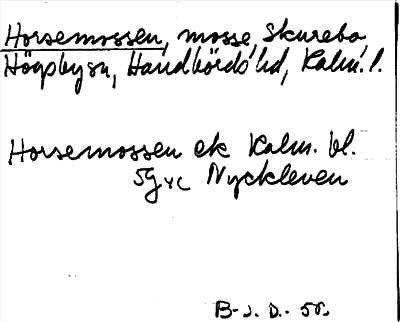 Horsemossen, mosse Skurebo
Högsby sn, Handbörds hd, Kalm. l.
Horsemossen ek Kalm. bl.
5G yc Nyckleven
B-s. D. - 58.